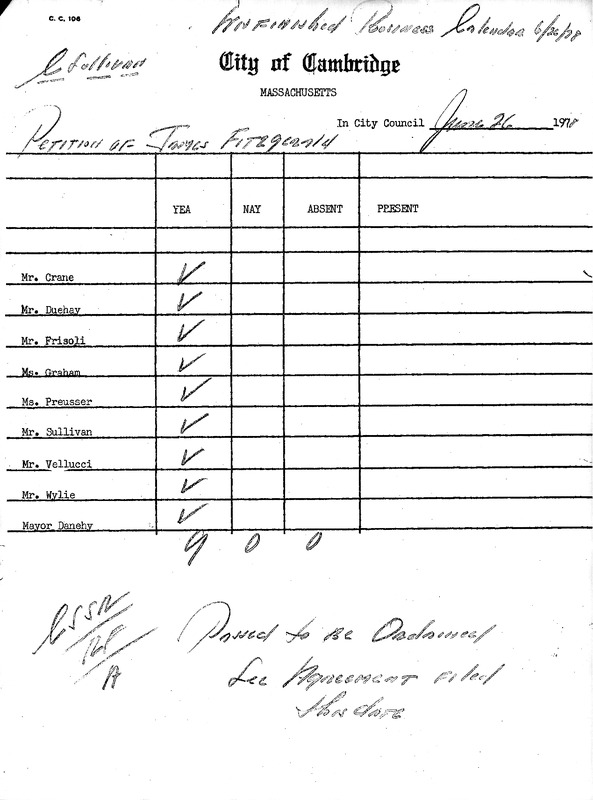 C. C. 106
Unfinished Business Calendar 6/26/78
C Sullivan
City of Cambridge
MASSACHUSETTS
In City Council June 26 1978
Petition of James Fitzgerald
YEA NAY ABSENT PRESENT
Mr. Crane ✓
Mr. Duehay ✓
Mr. Frisoli ✓
Ms. Graham ✓
Ms. Preusser ✓
Mr. Sullivan ✓
Mr. Vellucci ✓
Mr. Wylie ✓
Mayor Danehy ✓
9 0 0
Passed to be Ordained
See Agreement filed
this date